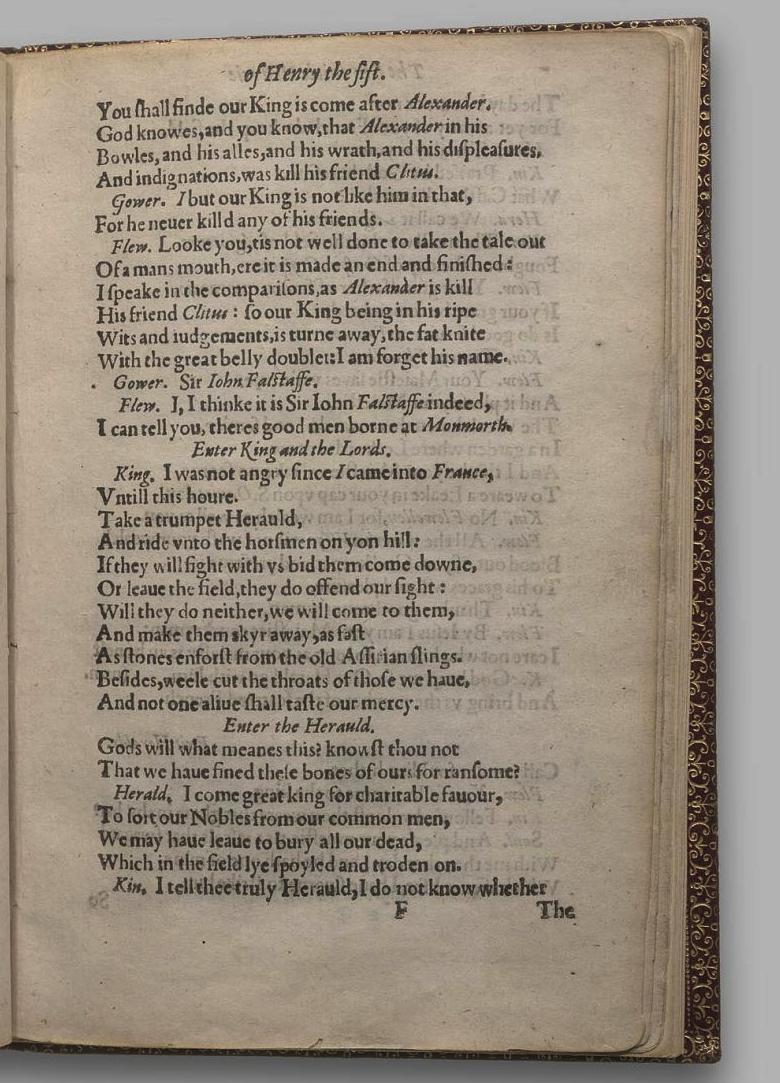 of Henry the fift.
You ſhall finde our King is come after Alexander.
God knowes,and you know,that Alexander in his
Bowles, and his alles,and his wrath,and his diſpleaſures,
And indignations,was kill his friend Clitus.
Gower. I but our King is not like him in that,
For he neuer killd any of his friends.
Flew. Looke you,tis not well done to take the tale out
Of a mans mouth,ere it is made an end and finiſhed:
I ſpeake in the compariſons,as Alexander is kill
His friend Clitus : ſo our King being in his ripe
Wits and iudgements,is turne away,the fat knite
With the great belly doublet:I am forget his name.
Gower. Sir Iohn Falſtaffe.
Flew. I, I thinke it is Sir Iohn Falſtaffe indeed,
I can tell you, theres good men borne at Monmorth.
Enter King and the Lords.
King. I was not angry ſince I came into France,
Vntill this houre.
Take a trumpet Herauld,
And ride vnto the horſmen on yon hill:
If they will fight with vs bid them come downe,
Or leaue the field,they do offend our ſight :
Will they do neither,we will come to them,
And make them skyr away,as faſt
As ſtones enforſt from the old Aſſirian ſlings.
Beſides,weele cut the throats of thoſe we haue,
And not one aliue ſhall taſte our mercy.
Enter the Herauld.
Gods will what meanes this? knowſt thou not
That we haue fined theſe bones of ours for ranſome?
Herald. I come great king for charitable fauour,
To ſort our Nobles from our common men,
We may haue leaue to bury all our dead,
Which in the field lye ſpoyled and troden on.
Kin. I tell thee truly Herauld,I do not know whether
F The